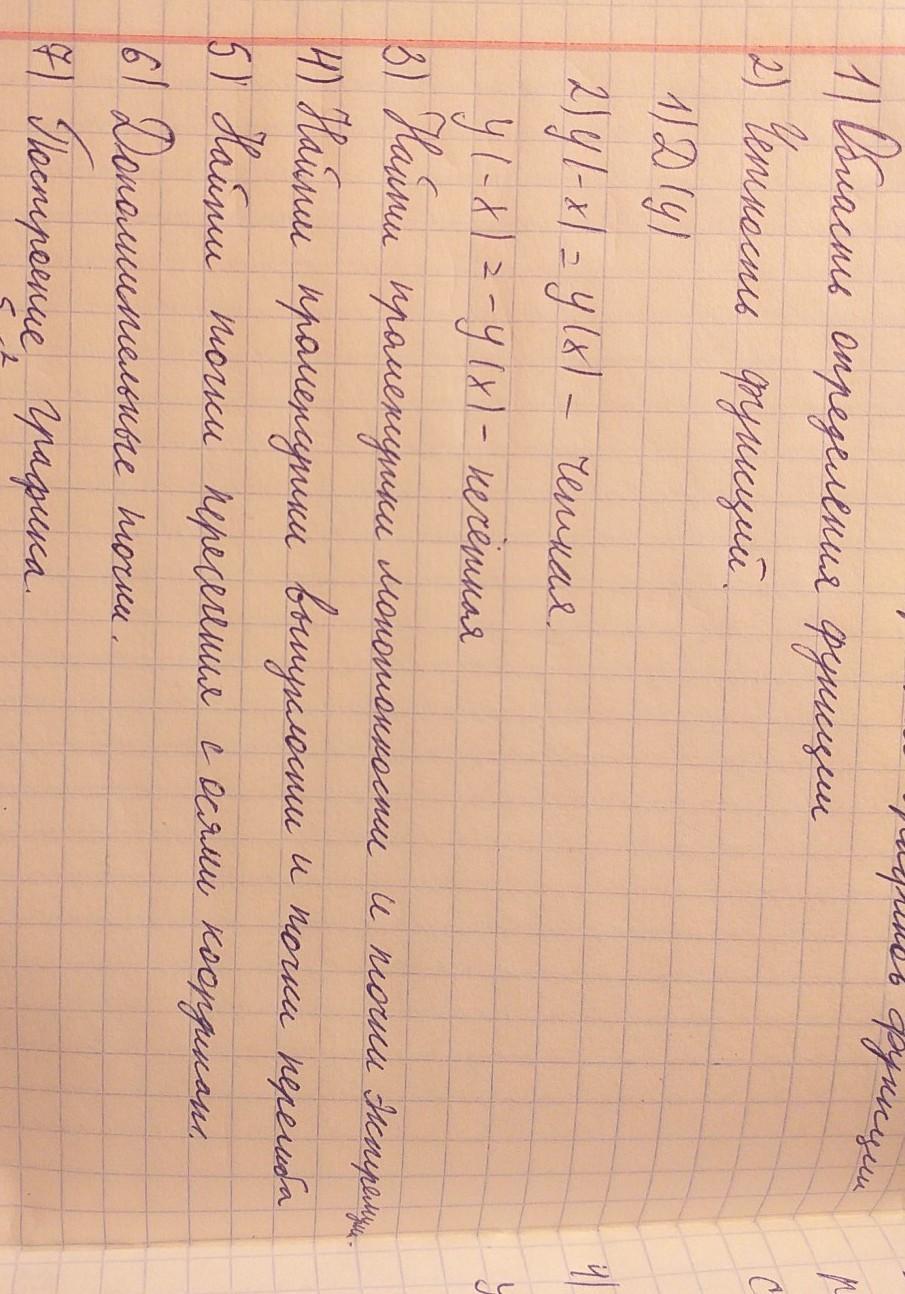 функции
1) Область определения функции
2) Чётность функций.
1) D(y)
2) y(-x) = y(x) - чётная.
y(-x) = -y(x) - нечётная
3) Найти промежутки монотонности и точки экстремум.
4) Найти промежутки выпуклости и точки перегиба
5) Найти точки пересечения с осями координат.
6) Дополнительные точки.
7) Построение графика.